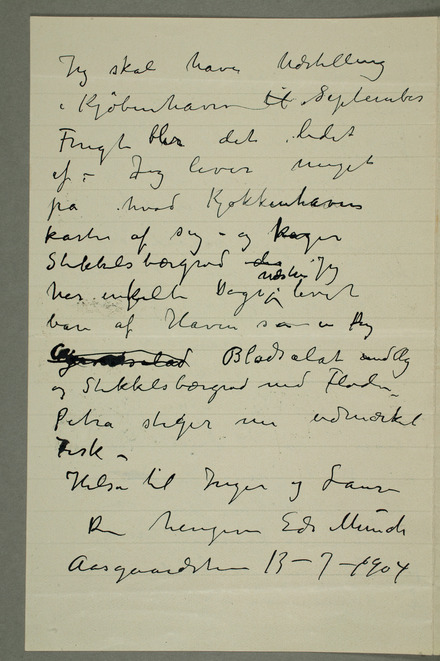 Jeg skal have Udstilling
i Kjöbenhavn til September
Frugt blir det lidet
af – Jeg lever meget
på hvad Kjøkkenhaven
kaster af sig – og koger
Stikkelsbærgrød
næsten Jeg
har enkelte Dage levet
bare af Haven som
Bladsalat
og Stikkelsbærgrød med Fløde –
Petra steger nu udmærket
Fisk –
Hilsen til Inger og Laura
Din hengivne Edv Munch
Aasgaardstran 13 – 7 – 1904